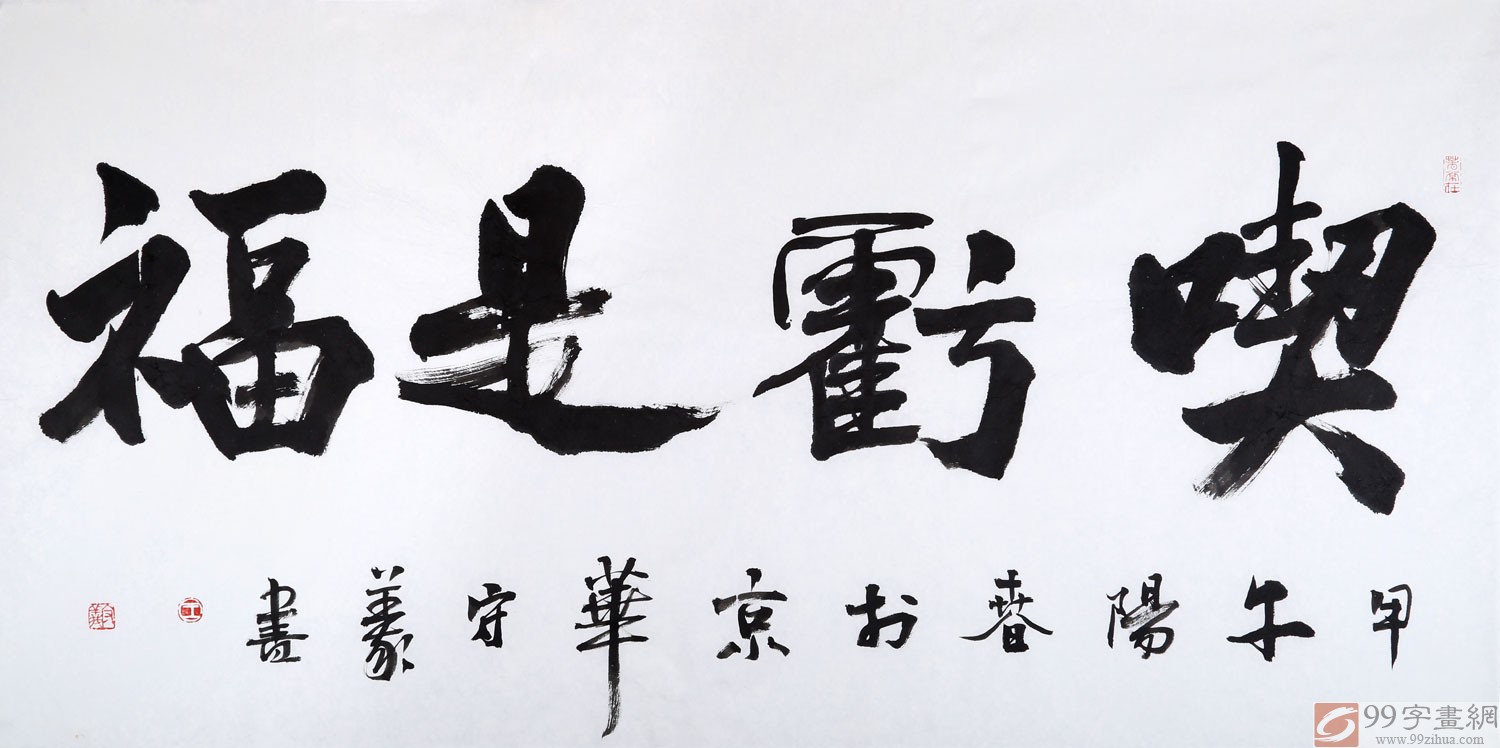 喫虧是福
甲午陽春於京華守義書
99字畫網
www.99zihua.com